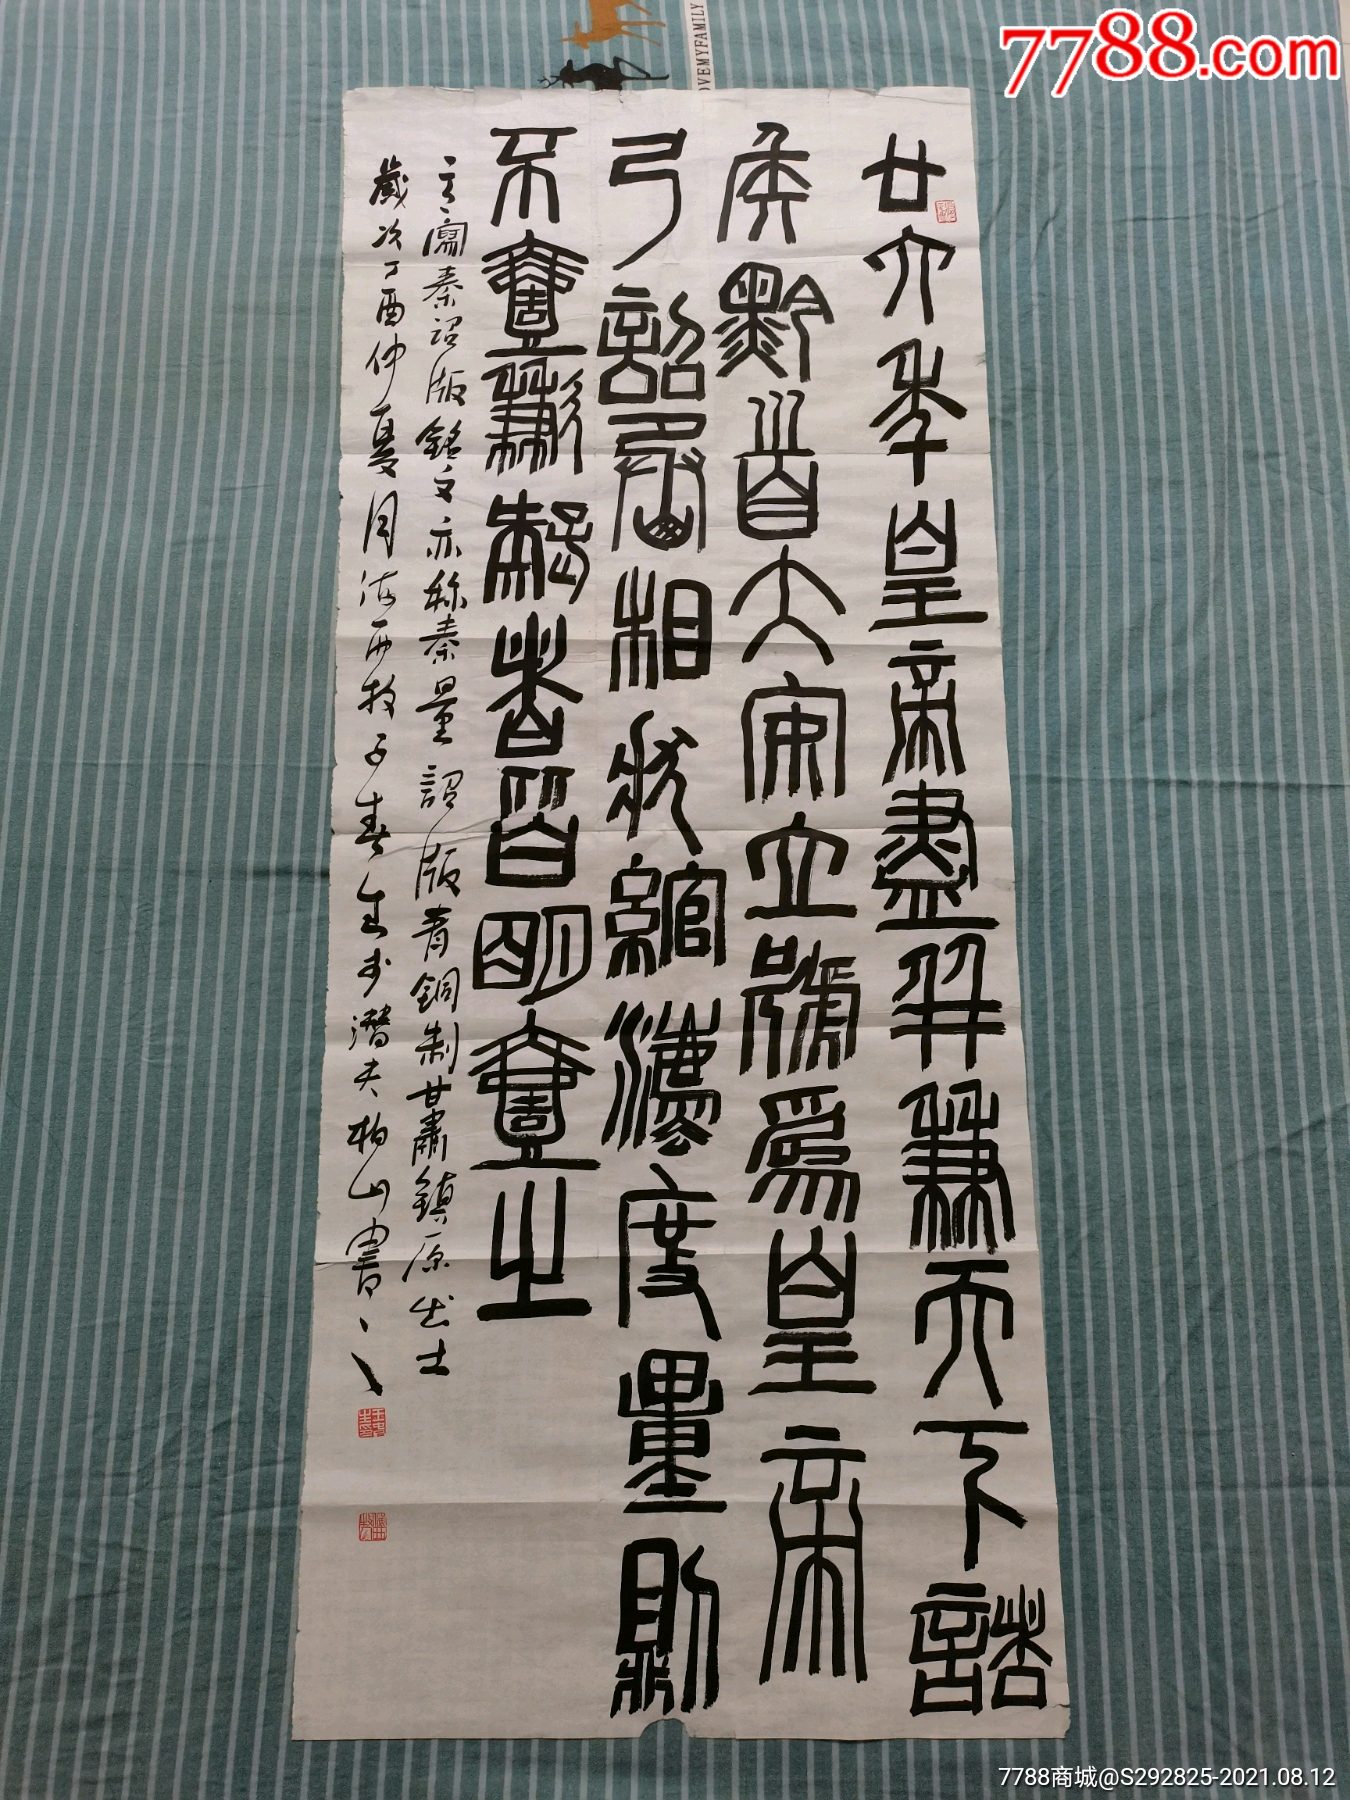 7788.com
OVEMYFAMILY
廿六年皇帝盡并兼天下諸
侯黔首大安立號爲皇帝
乃詔丞相狀綰灋度量則
不壹歉疑者皆明壹之
寫秦詔版銘文亦称秦量詔版青銅制甘肅鎮原出土
歲次丁酉仲夏月海西牧子春生於潛夫柏山書
7788商城@S292825-2021.08.12